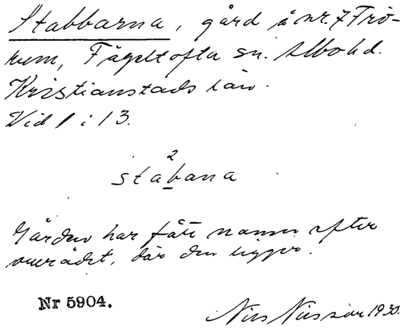 Stabbarna, gård å nr. 7 Frö-
rum, Fågeltofta sn. Albo hd.
Kristianstads län.
Vid 1 i 13.
2
stabana
Gården har fått namn efter
området, där den ligger.
Nr 5904.
Nils Nilsson 1930.